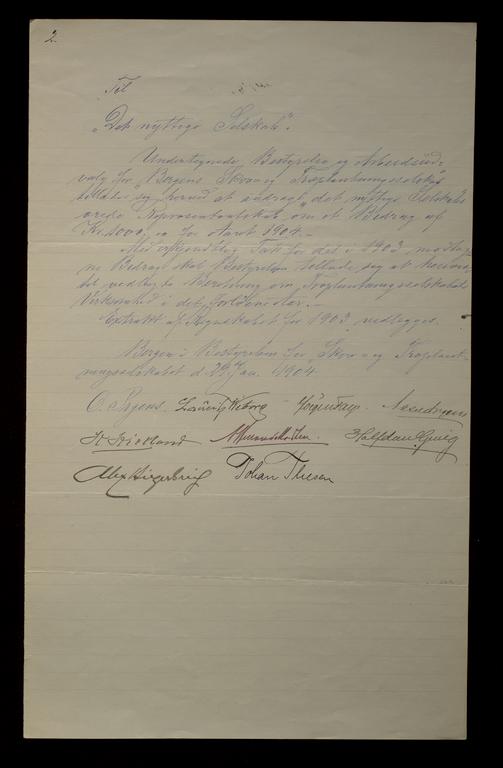 2.
Til
"Det nyttige Selskab".
Undertegnede Bestyrelse og Arbeidsud-
valg for "Bergens Skov og Træplantningsselskab"
tillader sig herved at andrage "det nyttige Selskabs"
ærede Repræsentantskab om et Bidrag af
Kr. 1000,00 for Aaret 1904.-
Med erkjendtlig Tak for det i 1903 modtag-
ne Bidrag skal Bestyrelsen tillade sig at henvise
til vedlagte Beretning om Træplantningsselskabets
Virksomhed i det forløbne Aar.-
Extrakt af Regnskabet for 1903 vedlægges.
Bergen i Bestyrelsen for Skov og Træplant-
ningsselskabet d. 29 Jan. 1904
Johan Thesen